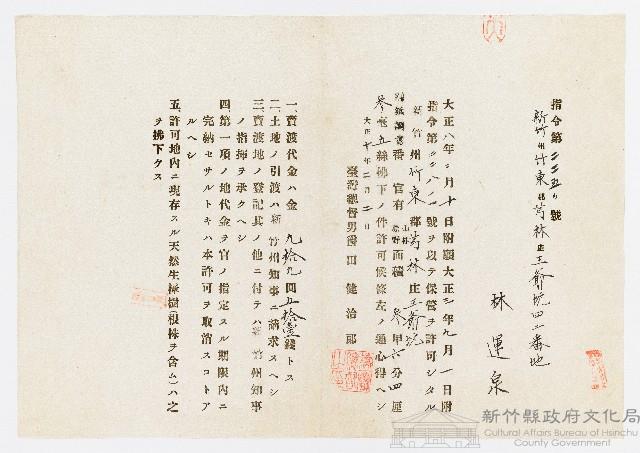 指令第二二三五ノ號
新竹州竹東郡芎林庄王爺坑四二番地
林運泉
大正八年二月十日附願大正三年九月一日附
指令第二二八一號ヲ以テ保管ヲ許可シタル
新竹州竹東郡芎林庄王爺坑
別紙調書番官有山林原野面積參甲六分四厘
參毫五絲拂下ノ件許可候條左ノ通心得ヘシ
大正十年二月二日
臺灣總督男爵田健治郎
一、賣渡代金ハ金九拾九圓五拾壹錢トス
二、土地ノ引渡ハ新竹州知事ニ請求スヘシ
三、賣渡地ノ登記其ノ他ニ付テハ新竹州知事
ノ指揮ヲ承クヘシ
四、第一項ノ地代金ヲ官ノ指定スル期限內ニ
完納セサルトキハ本許可ヲ取消スコトア
ルヘシ
五、許可地內ニ現存スル天然生樟樹(根株ヲ含ム)ハ之
ヲ拂下クス
新竹縣政府文化局
Cultural Affairs Bureau of Hsinchu
County Government